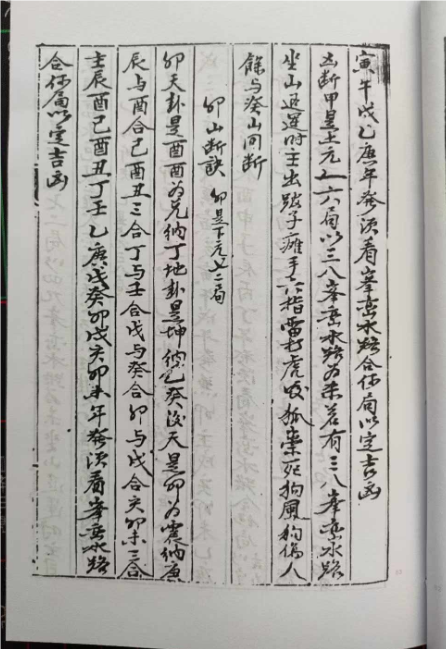 寅午戌乙庚年發須看峯巒水路合何局以定吉凶
凶断甲是上元七六局以三八峯巒水路为未若有三八峯巒水路
坐山退運时主出跛子癱手六指雷打虎咬孤寡死狗風狗傷人
餘与癸山同断
卯山断訣 卯是下元七二局
卯天卦是酉酉为兑納丁地卦是坤納乙癸後天是卯为震納庚
辰与酉合巳酉丑三合丁与壬合戊与癸合卯与戌合亥卯未三合
壬辰酉巳酉丑丁壬乙庚戊癸卯戌亥卯未年發須看峯巒水路
合何局以定吉凶